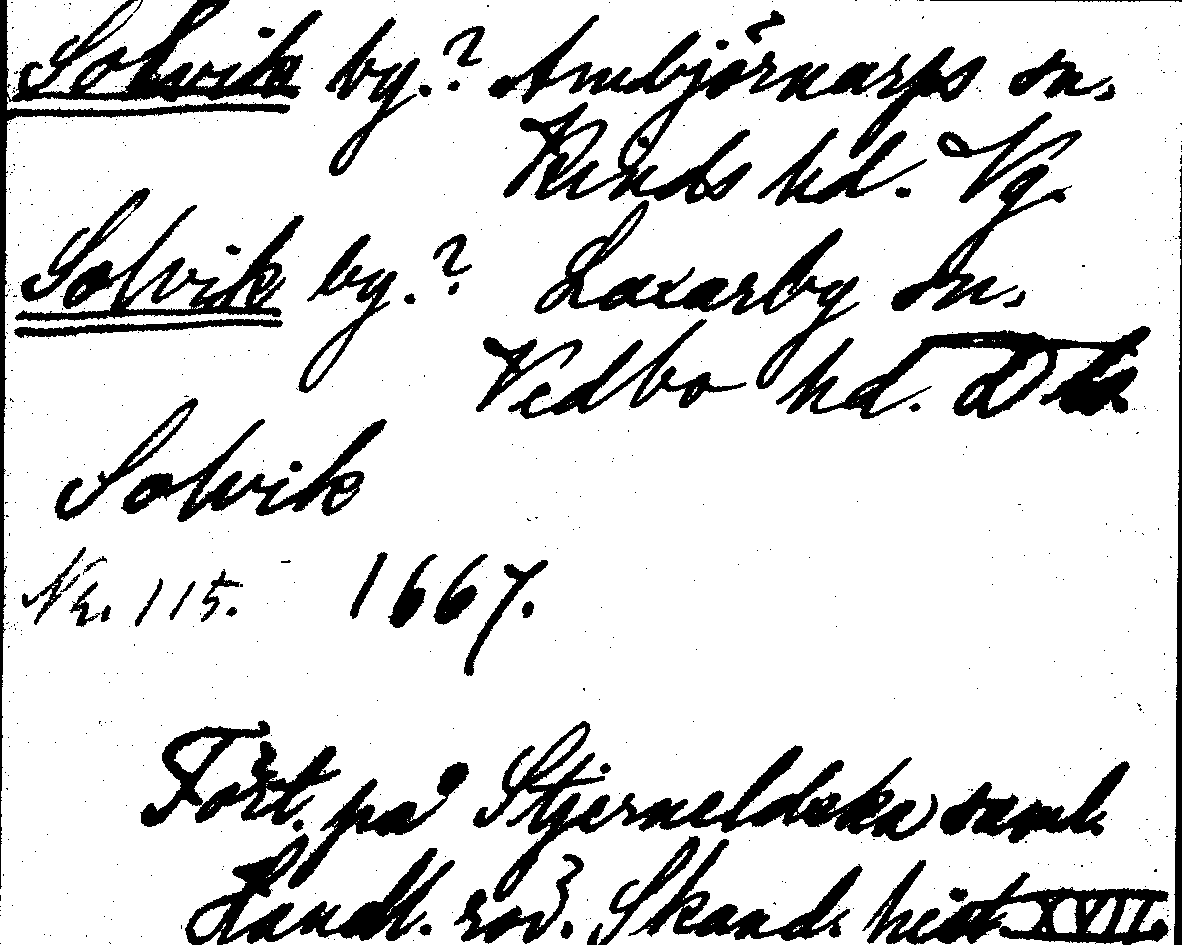 Solvik by.? Ambjörnarps sn.
Kinds hd. Vg.
Solvik by.? Laxarby sn.
Vedbo hd. Dls.
Solvik
Nr. 115. 1667.
Fört. på Stjerneldska saml.
Handl. rör. Skand. hist. XVII.